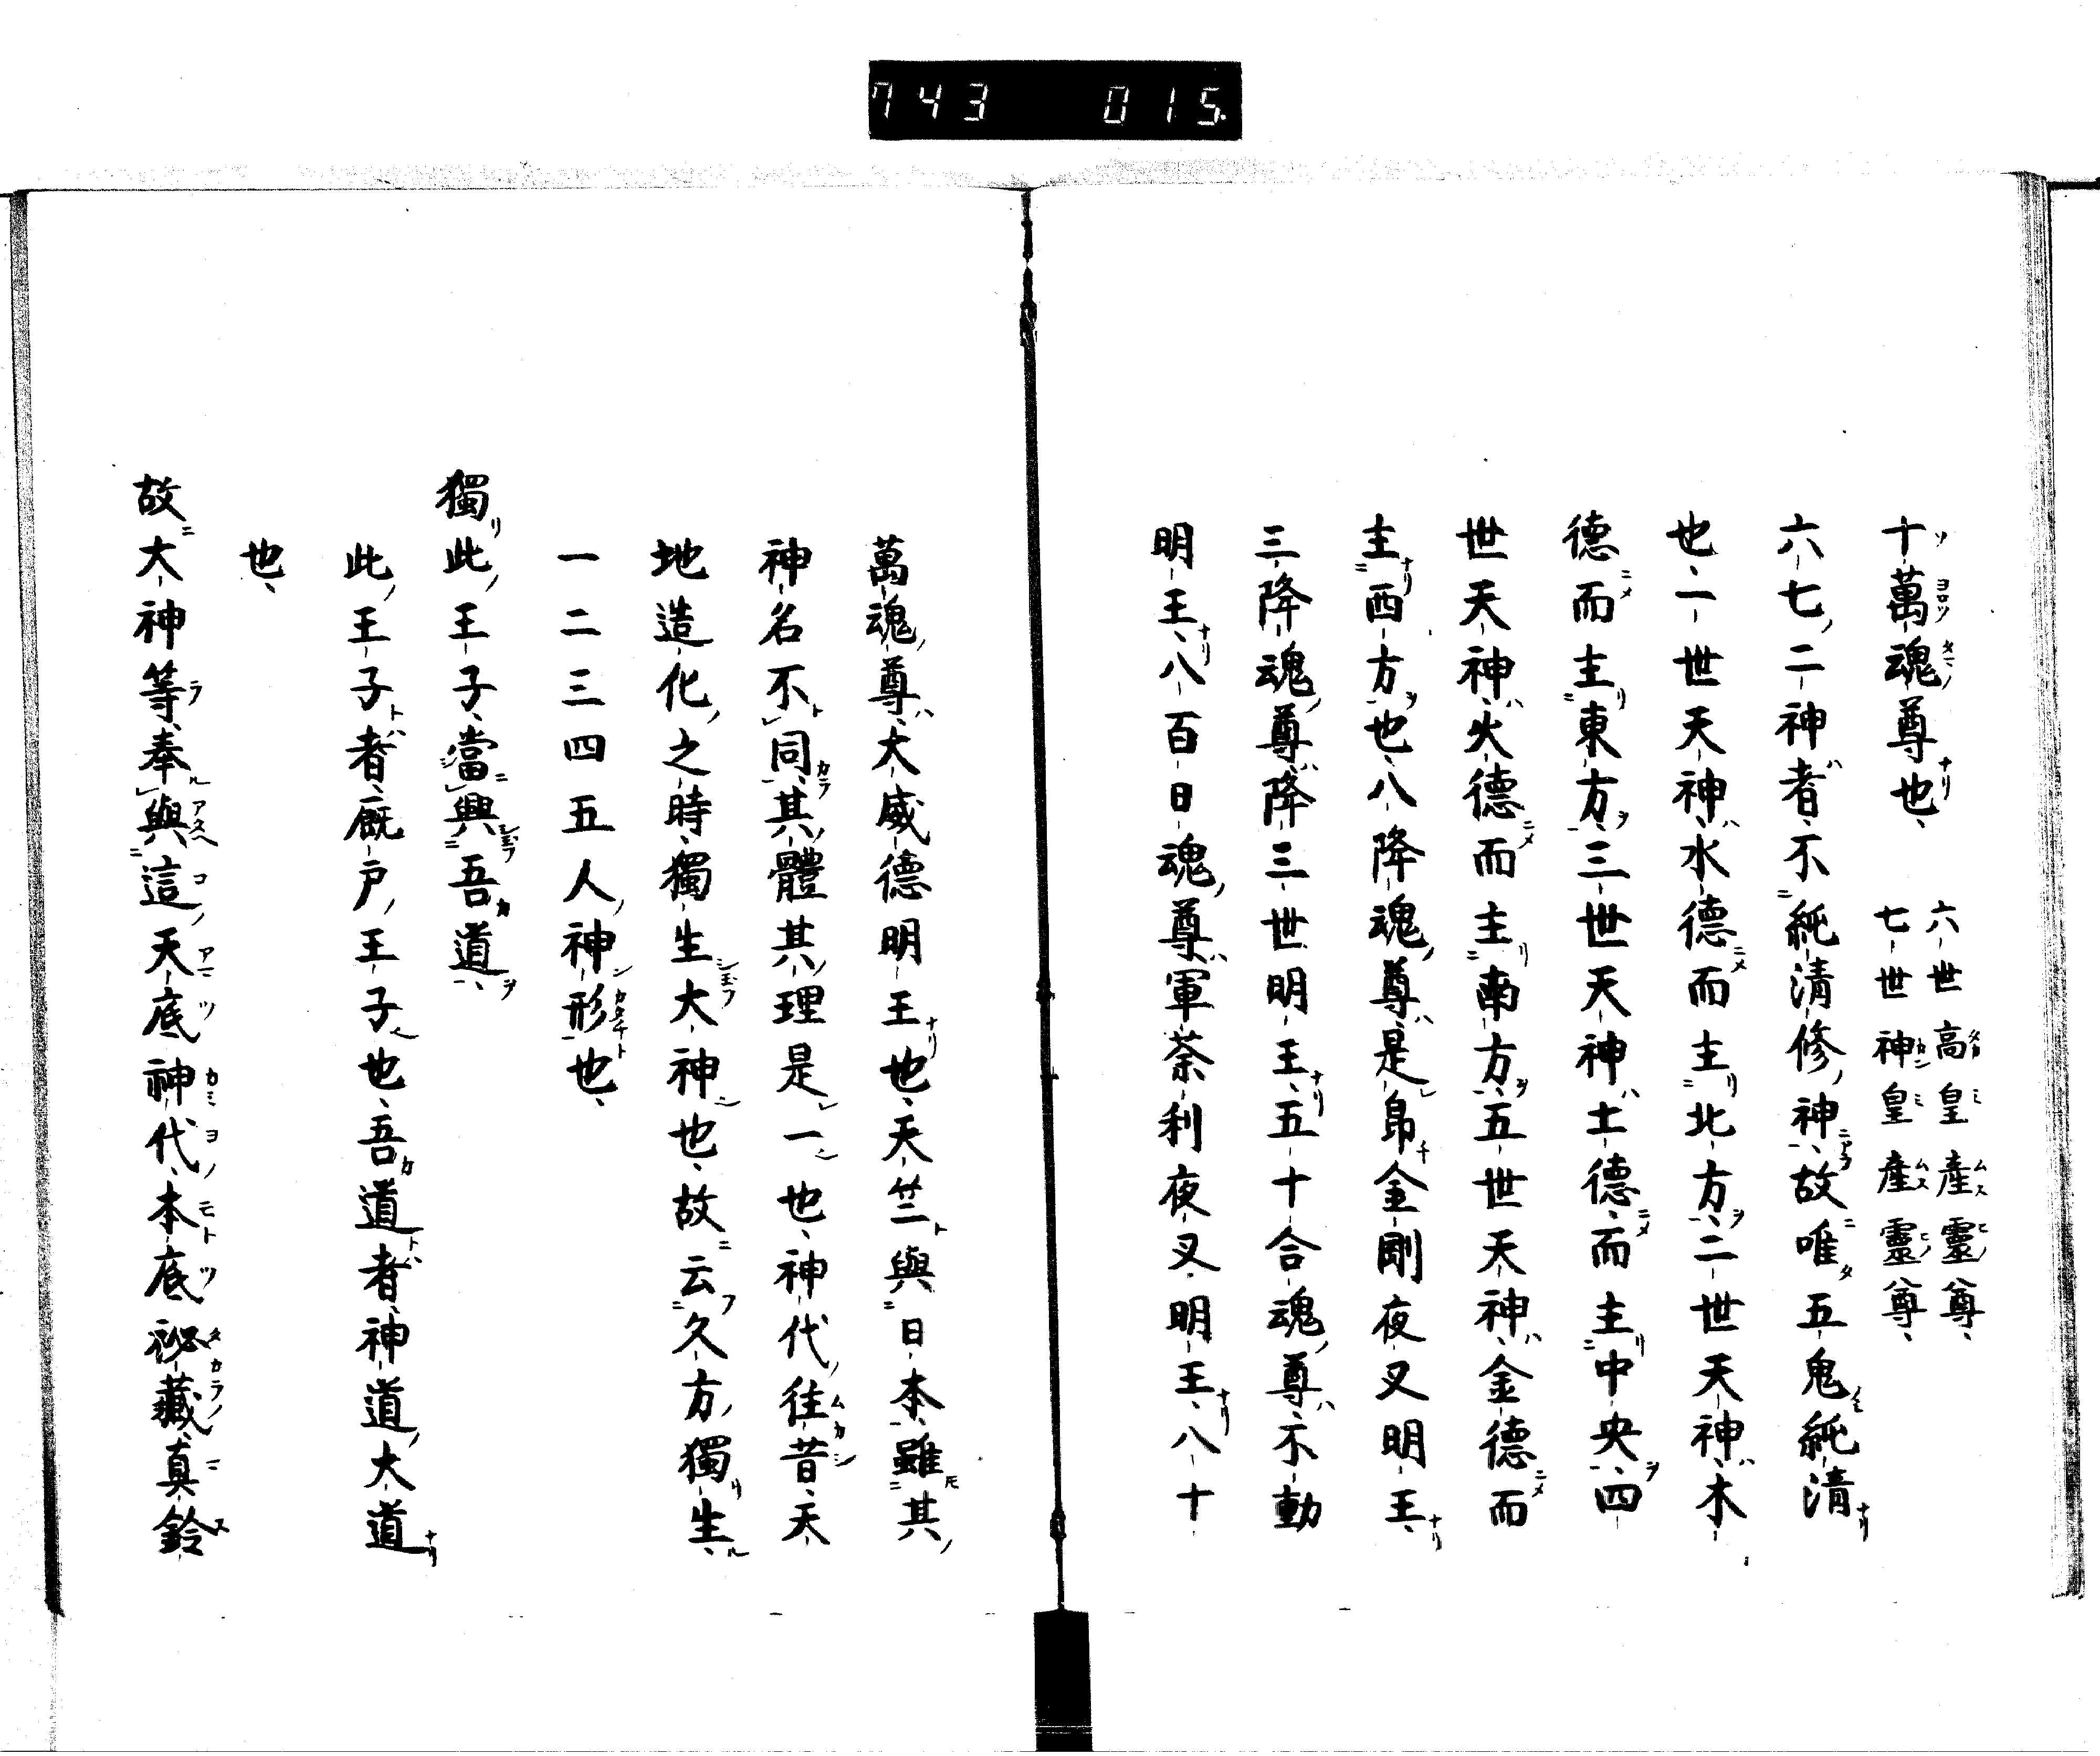 743 015
十萬魂尊也、
六世高皇產靈尊、
七世神皇產靈尊、
六七二神者不純清修神、故唯五鬼純清
也、一世天神、水德而主北方、二世天神、木
德而主東方、三世天神土德而主中央、四
世天神、火德而主南方、五世天神、金德而
主西方也、八降魂尊是帛金剛夜叉明王、
三降魂尊降三世明王、五十合魂尊不動
明王、八百日魂尊軍荼利夜叉明王、八十
萬魂尊大威德明王也、天竺與日本、雖其
神名不同、其體其理是一也、神代往昔、天
地造化之時、獨生大神也、故云久方獨生、
一二三四五人神形也、
獨此王子、當興吾道、
此王子者、厩戸王子也、吾道者、神道大道
也、
故大神等、奉與這天底神代、本底祕藏、真鈴